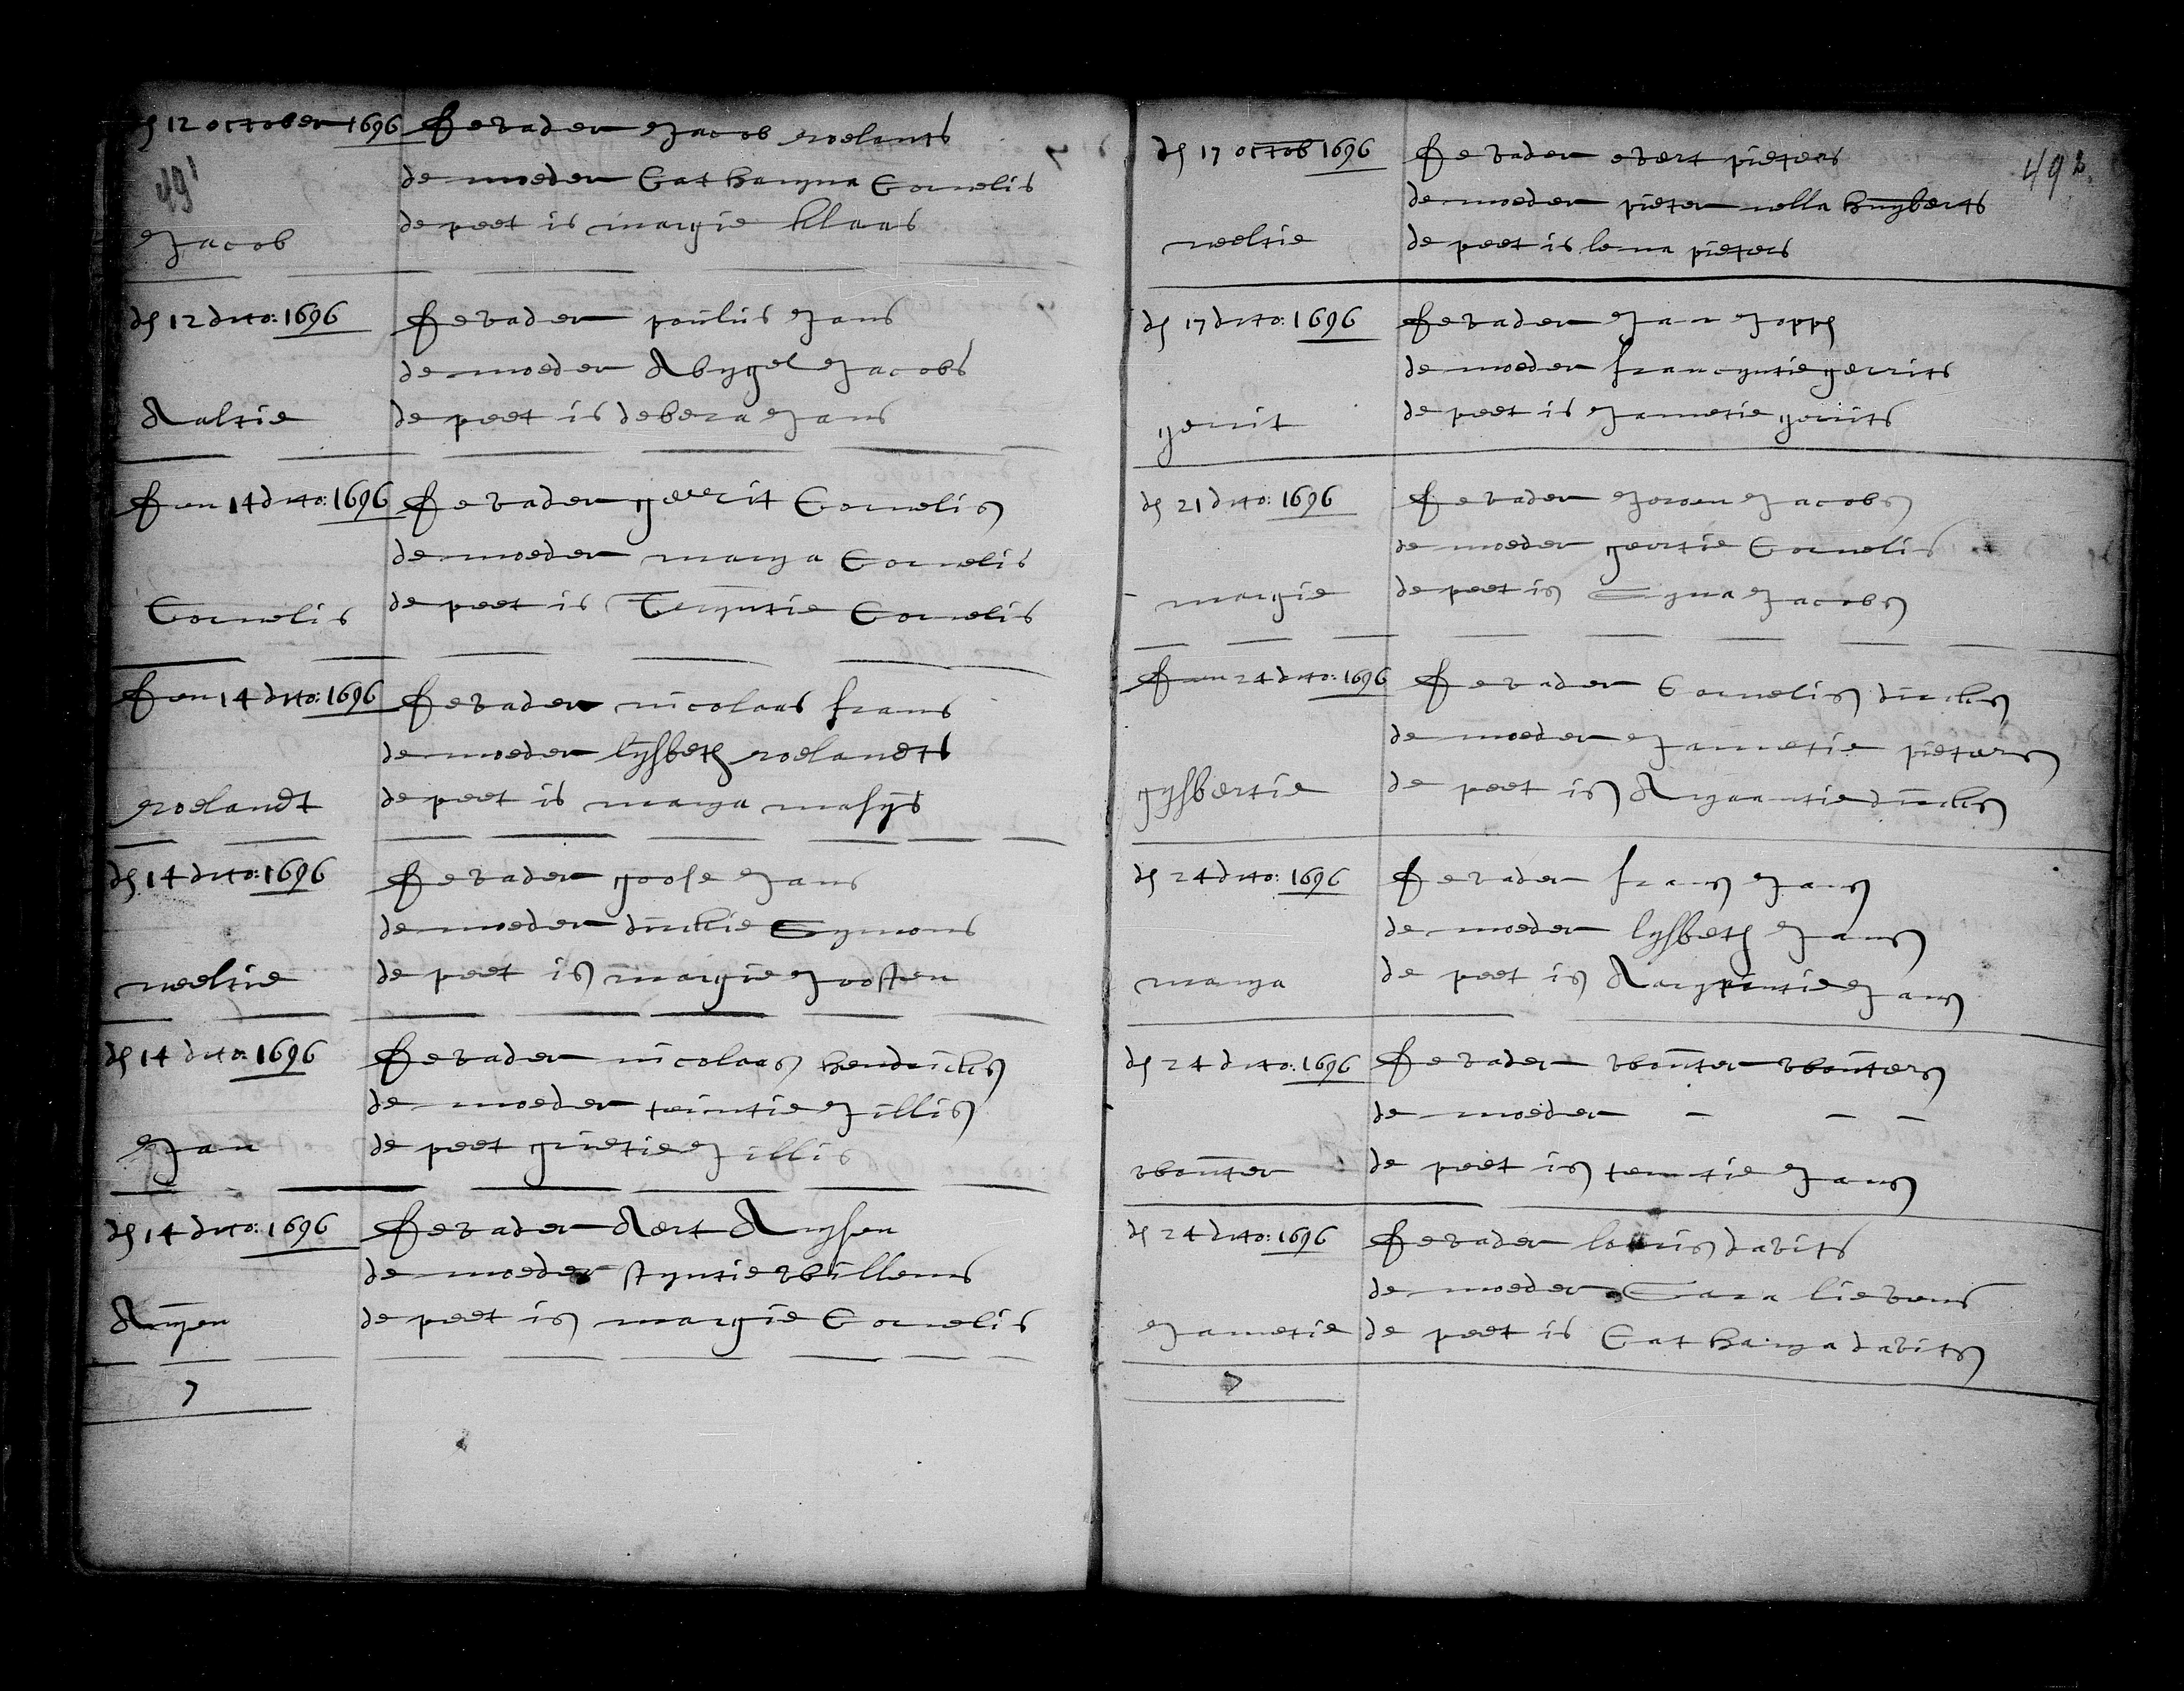 dn 12 october 1696 De vader Jacob roelants
491
de moeder Catharyna Cornelis
de peet is maryie klaas
Jacob
dn 12 ditto: 1696 De vader poulus Jans
de moeder Abygel Jacobs
Aaltie de peet is debera Jans
Den 14 ditto: 1696 De vader gerrit Cornelis
de moeder marya Cornelis
Cornelis de peet is Teryntie Cornelis
Den 14 ditto: 1696 De vader nicolaas frans
de moeder lijsbeth roelandts
roelandt de peet is marya masijs
dn 14 ditto: 1696 De vader goose Jans
de moeder dirckie Symons
neeltie de peet is maryie Joosten
dn 14 ditto: 1696 De vader nicolaas hendricks
de moeder teintie Jillis
Jan de peet grietie Jillis
dn 14 ditto: 1696 De vader Aert Arysen
de moeder styntie willems
Aryen de peet is maryie Cornelis
7
492
dn 17 octob 1696 De vader evert pieters
de moeder pieternella huyberts
neeltie de peet is lena pieters
dn 17 ditto: 1696 De vader Jan Joppn
de moeder francyntie gerrits
gerrit de peet is Jannetie gerrits
dn 21 ditto: 1696 De vader Jeroen Jacobs
de moeder geertie Cornelis
maryie de peet is Syna Jacobs
Den 24 ditto: 1696 De vader Cornelis dircks
de moeder Jannetie pieters
gijsbertie de peet is Aryaantie dircks
dn 24 ditto: 1696 De vader frans Jans
de moeder lijsbeth Jans
marya de peet is Jans
dn 24 ditto: 1696 De vader wouter wouters
de moeder - - -
wouter de peet is teuntie Jans
dn 24 ditto: 1696 De vader louis davits
de moeder Sara lievens
Jannetie de peet is Catharyna davits
7